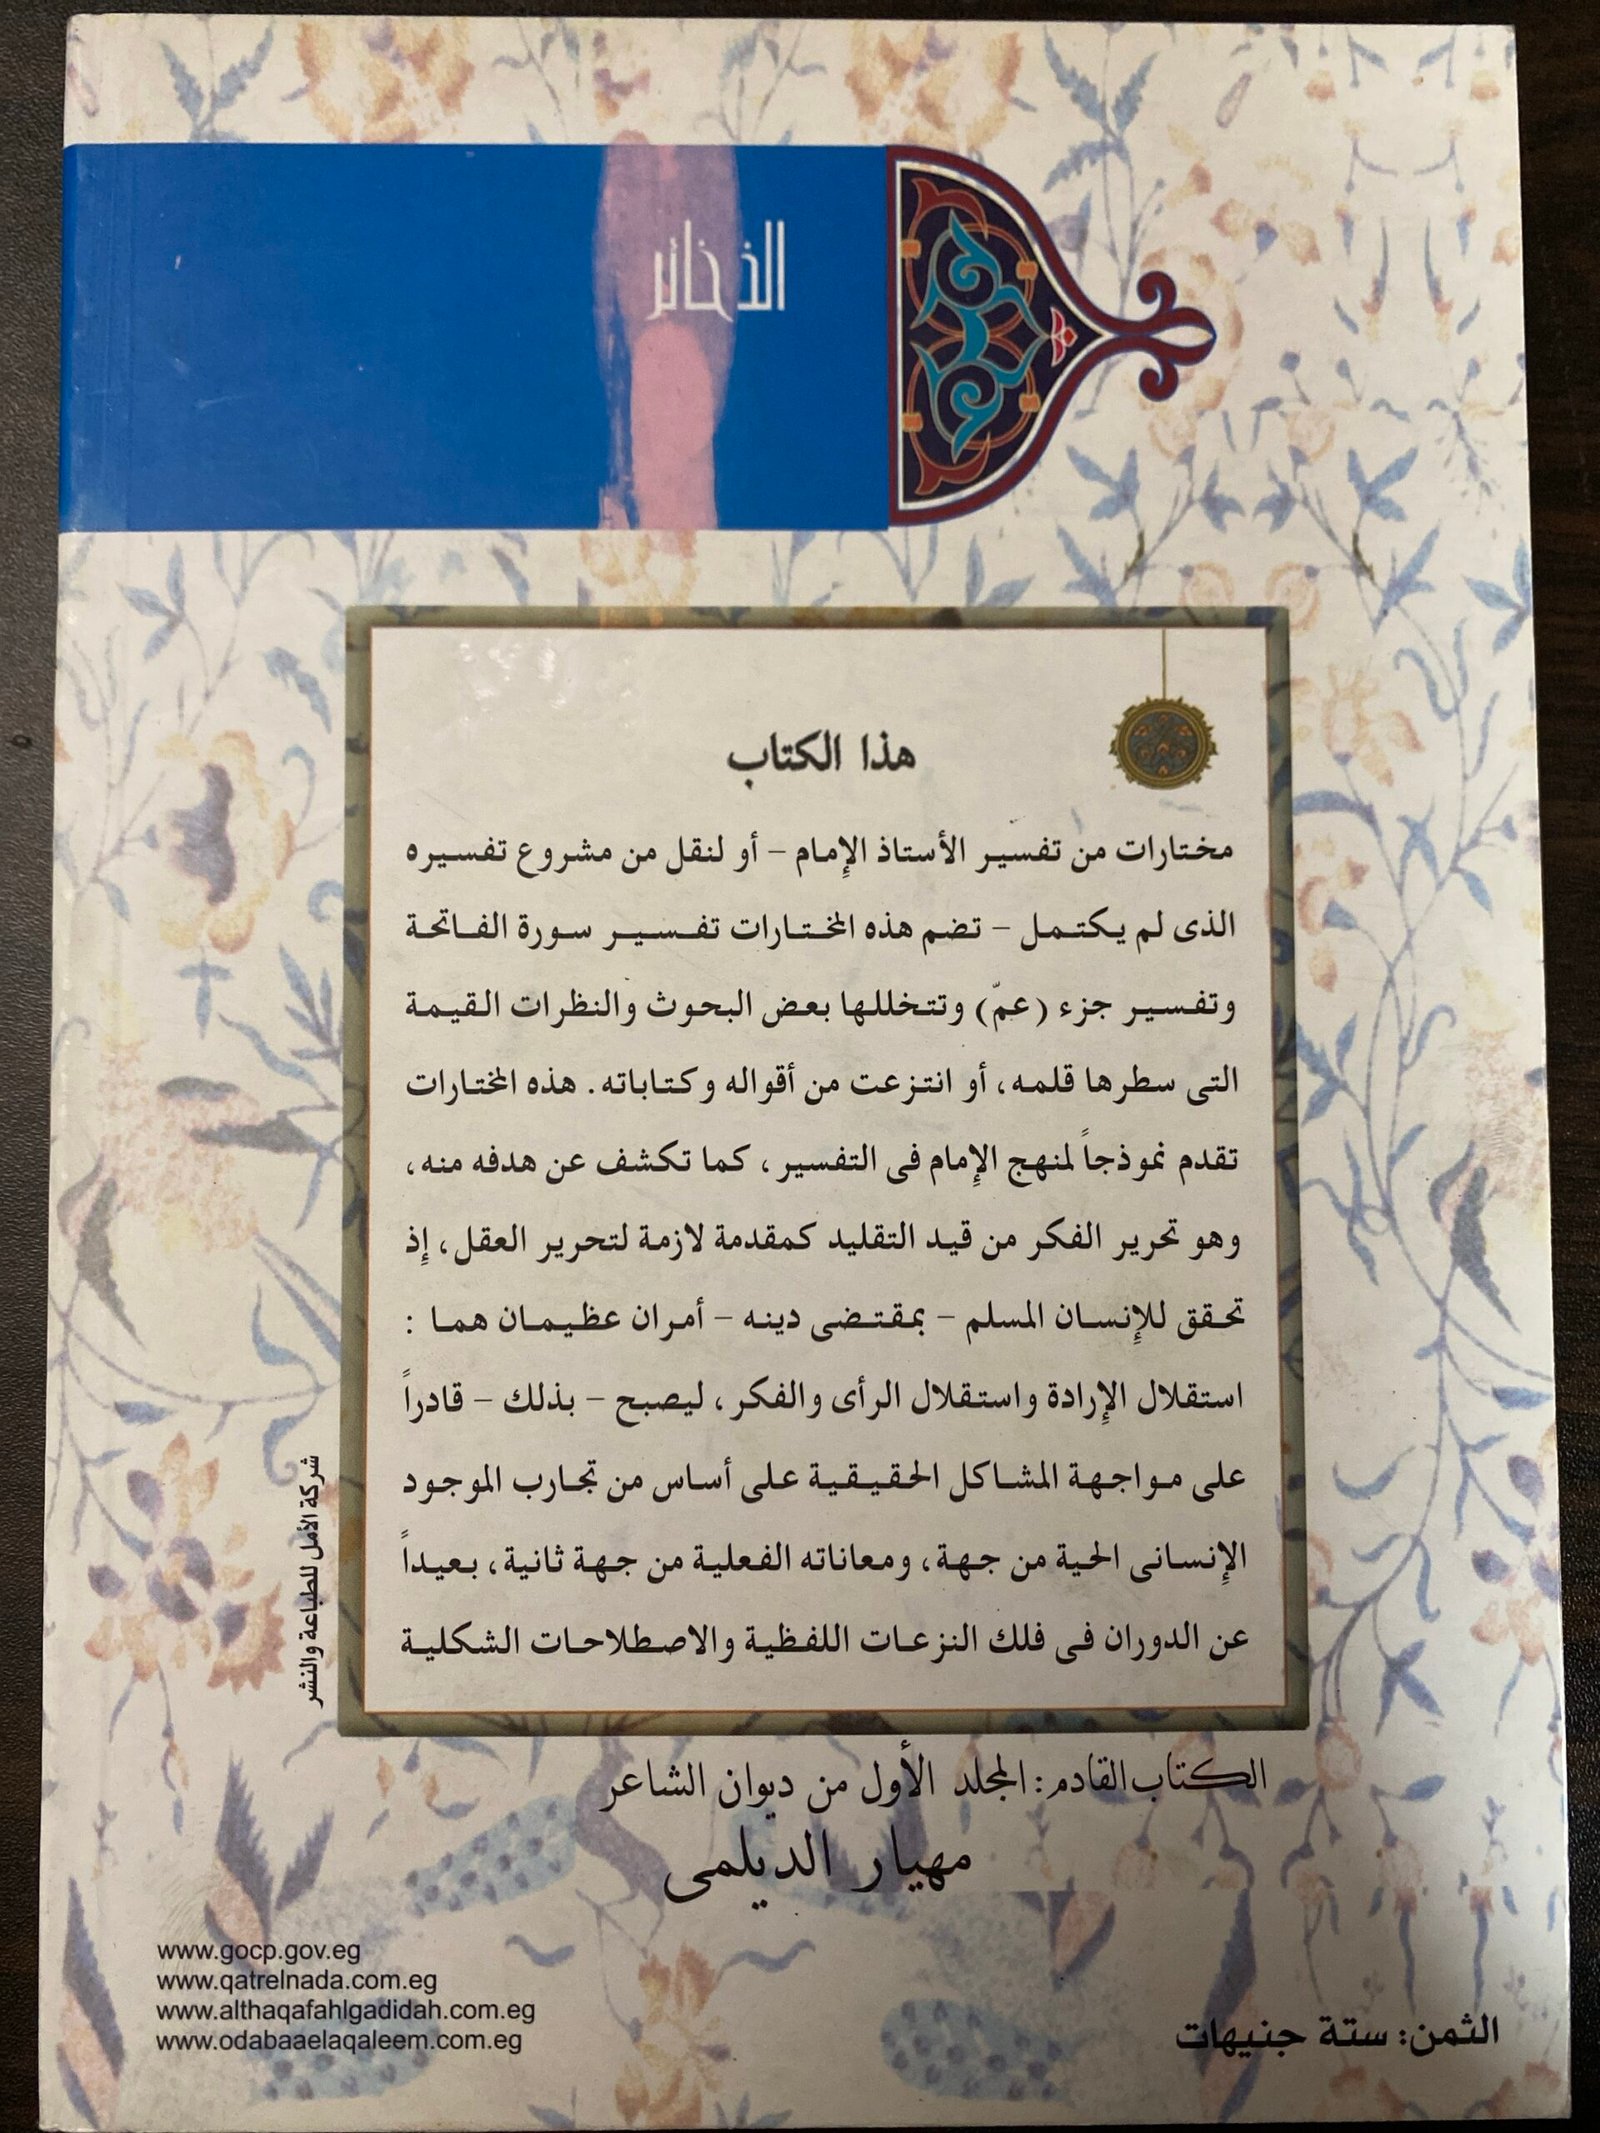 الذخائر
هذا الكتاب
مختارات من تفسير الأستاذ الإمام - أو لنقل من مشروع تفسيره
الذى لم يكتمل - تضم هذه المختارات تفسير سورة الفاتحة
وتفسير جزء (عمّ) وتتخللها بعض البحوث والنظرات القيمة
التى سطرها قلمه، أو انتزعت من أقواله وكتاباته. هذه المختارات
تقدم نموذجاً لمنهج الإمام فى التفسير، كما تكشف عن هدفه منه،
وهو تحرير الفكر من قيد التقليد كمقدمة لازمة لتحرير العقل، إذ
تحقق للإنسان المسلم - بمقتضى دينه - أمران عظيمان هما :
استقلال الإرادة واستقلال الرأى والفكر، ليصبح - بذلك - قادراً
على مواجهة المشاكل الحقيقية على أساس من تجارب الموجود
الإنسانى الحية من جهة، ومعاناته الفعلية من جهة ثانية، بعيداً
عن الدوران فى فلك النزعات اللفظية والاصطلاحات الشكلية
شركة الأمل للطباعة والنشر
الكتاب القادم: المجلد الأول من ديوان الشاعر
مهيار الديلمى
www.gocp.gov.eg
www.qatrelnada.com.eg
www.althaqafahlgadidah.com.eg
www.odabaaelaqaleem.com.eg
الثمن: ستة جنيهات